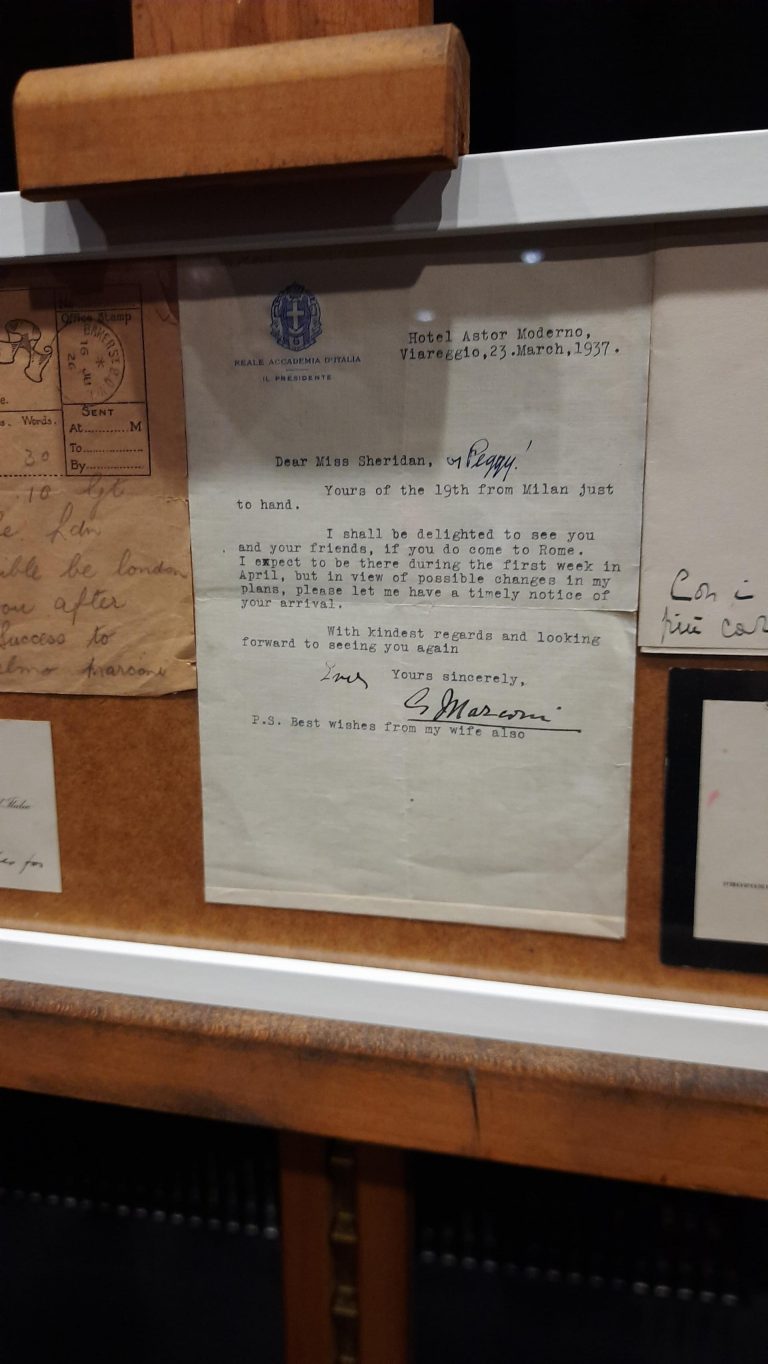 Office Stamp
BAKER ST
16 JU
26
s. Words.
SENT
At..........M
To..............
By..............
30
10
Ldn
ible be london
you after
Success to
elmo Marconi
REALE ACCADEMIA D'ITALIA
IL PRESIDENTE
Hotel Astor Moderno,
Viareggio,23.March,1937.
Dear Miss Sheridan, or Peggy!
Yours of the 19th from Milan just
to hand.
I shall be delighted to see you
and your friends, if you do come to Rome.
I expect to be there during the first week in
April, but in view of possible changes in my
plans, please let me have a timely notice of
your arrival.
With kindest regards and looking
forward to seeing you again
Ever Yours sincerely,
G Marconi
P.S. Best wishes from my wife also
Con i
più car